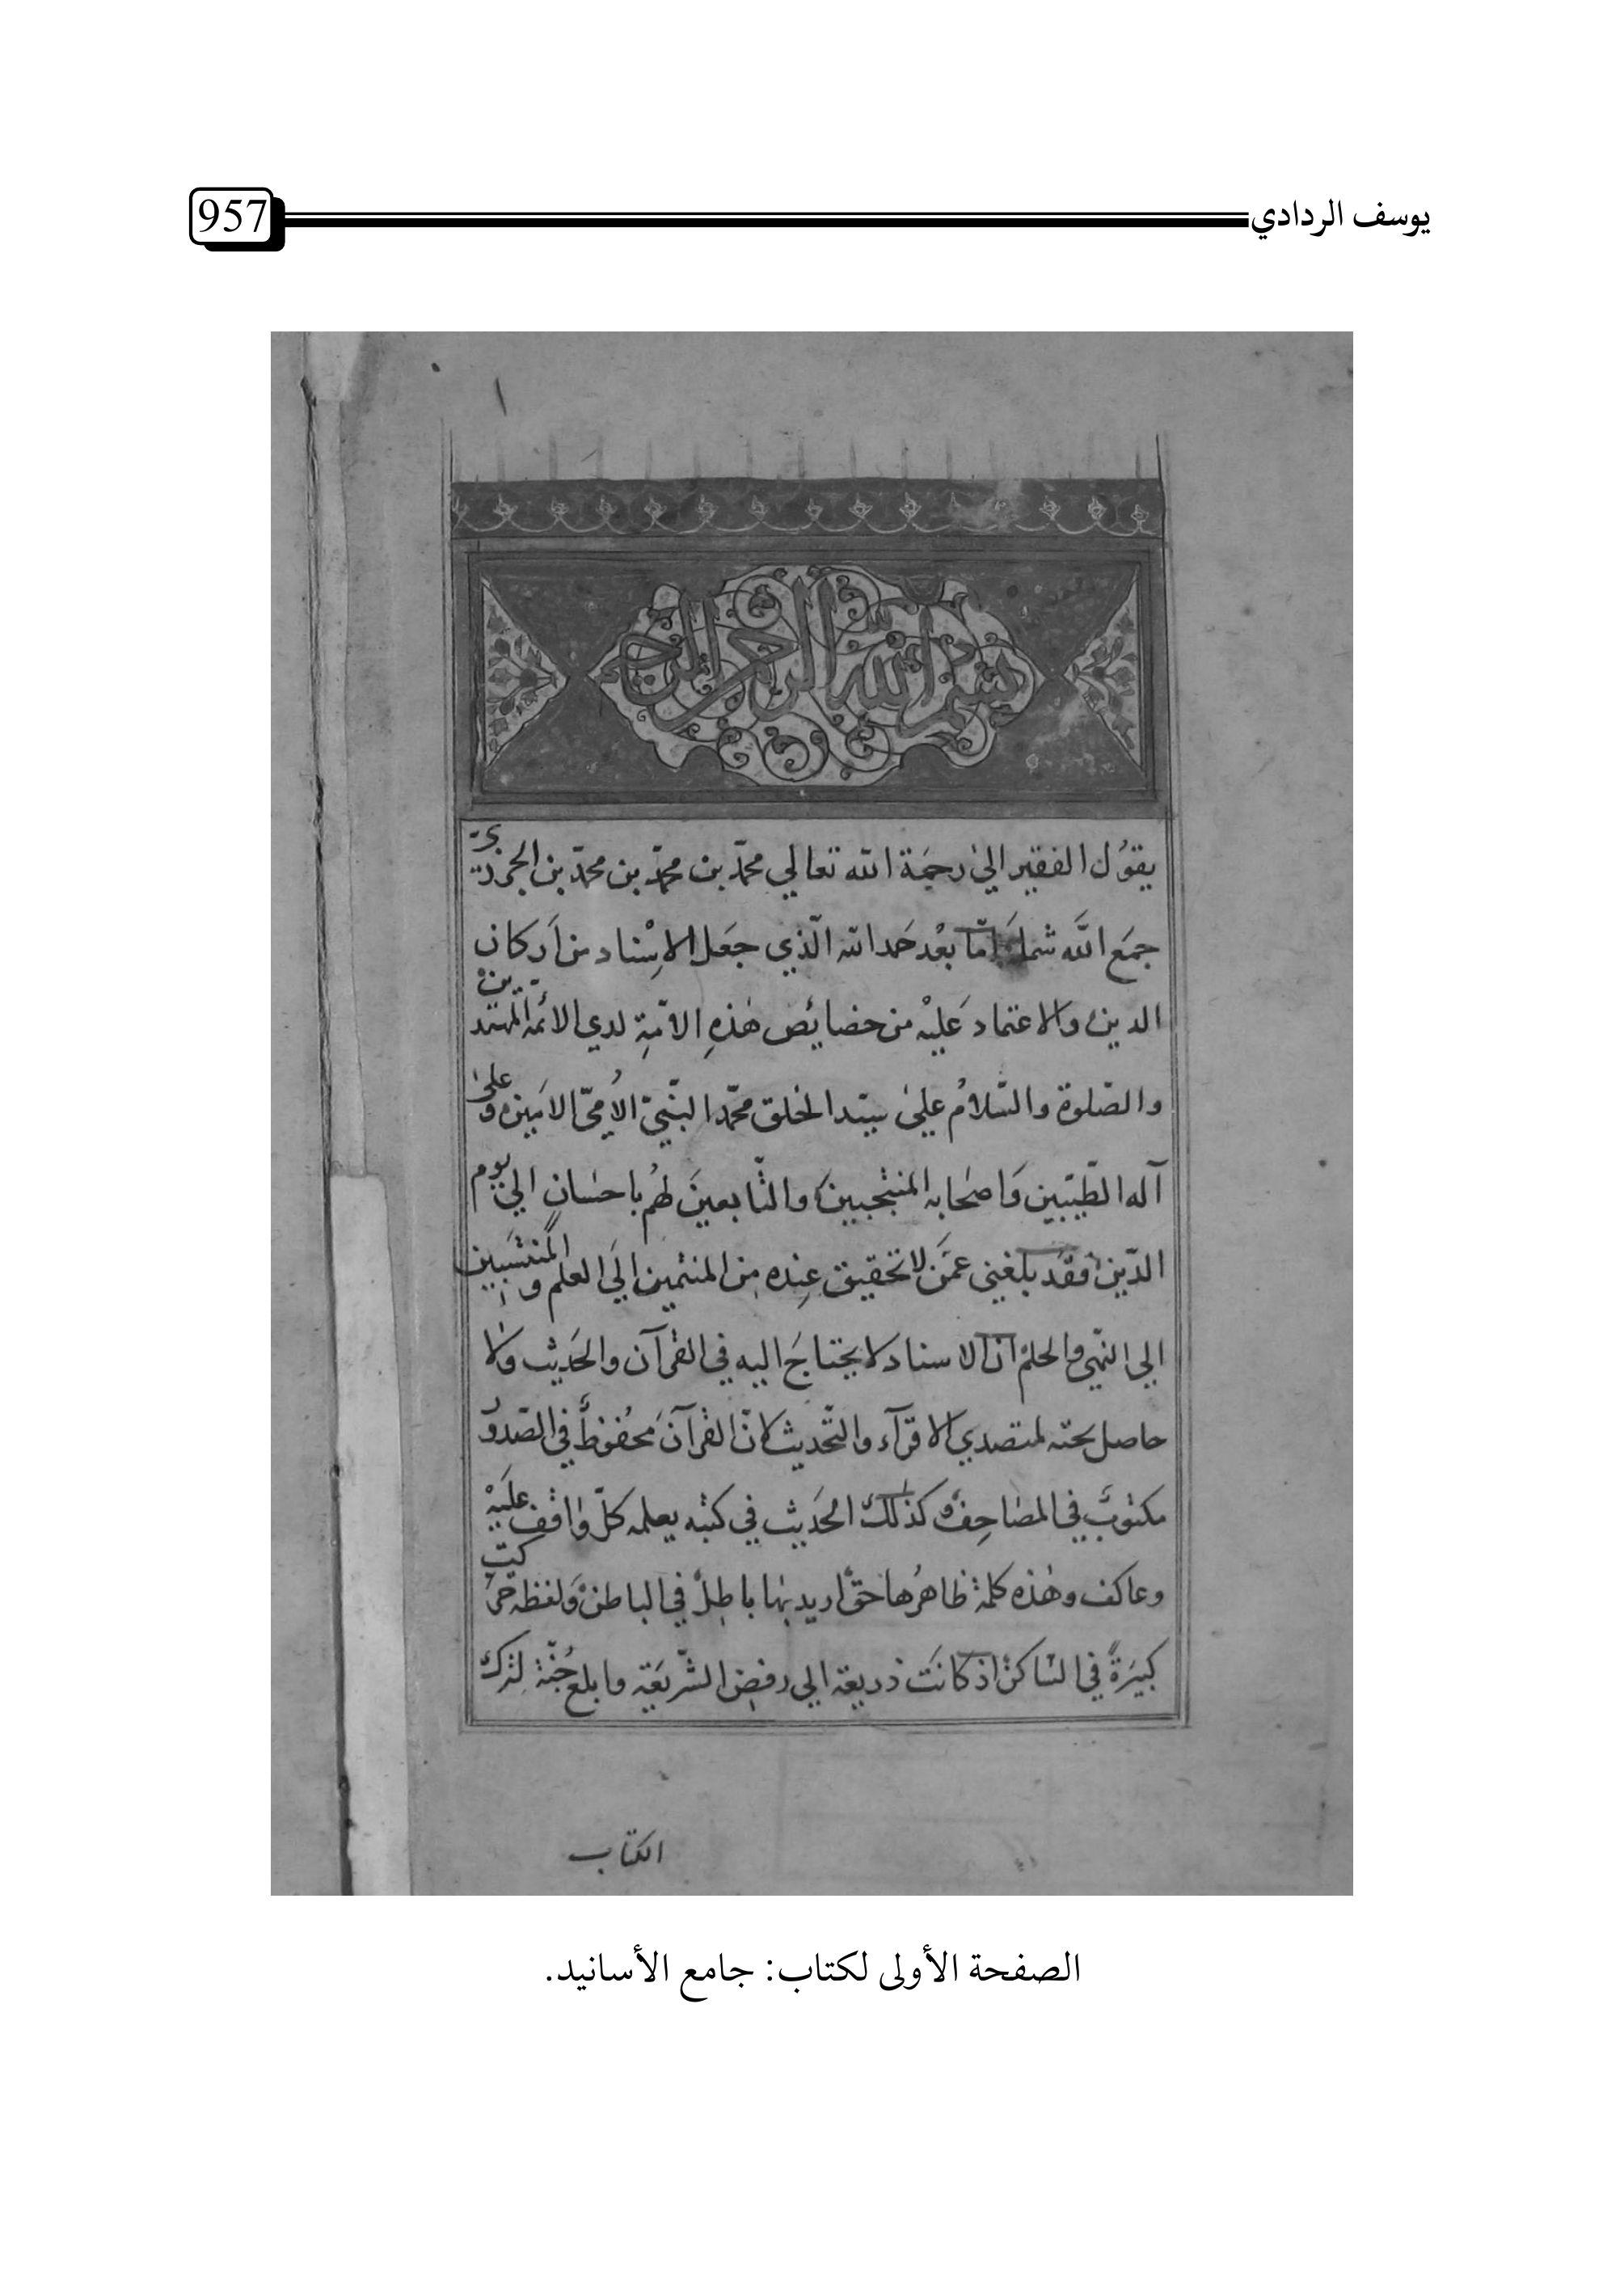 يوسف الردادي
957
بسم الله الرحمن الرحيم
يقوُل الفقير الي رحمَة الله تعالي محمّد بن محمّد بن محمّد بن الجزريّ
جمَع الله شمله امّا بعْد حَمد الله الّذي جعَل الاِسْناد من اَركان
الدين والاعتماد عَليْه من خصائص هٰذهِ الامّةِ لدي الائمه المهتدين
والصّلوة والسّلامُ علىٰ سيّد الخلق محمّد النّبيّ الاُميّ الامَين وعلىٰ
آله الطّيّبين وَاصحٰابه المنتجبين والتّابعينَ لهُم باحسٰانٍ الي يوم
الدّين فقَد بلغني عمَّن لا تحقيق عِنده مِن المنتمين الَي العلم والمُنتسَبين
الي النهي والحلم انّ الاسناد لا يحتاجَ اليه في القرآن والحَديث ولا
حاصل تحته لمتصدي الاقرآء والتّحديث لانّ القرآنَ مَحفُوظٌ في الصّدوُر
مكتوبٌ في المصٰاحِف وكذٰلك الحَديث في كتبه يعلمه كلّ وٰاقف علَيْه
وعاكف وهٰذه كلمة ظاهرُها حقٌ اريد بهٰا باطِلٌ في الباطن وَلفظه حرّكت
كبيَرةً في السّاكن اذ كانَت ذريعة الي رفضِ الشّريعَة وابلع جُنّة لِترك
الكتاب
الصفحة الأولى لكتاب: جامع الأسانيد.